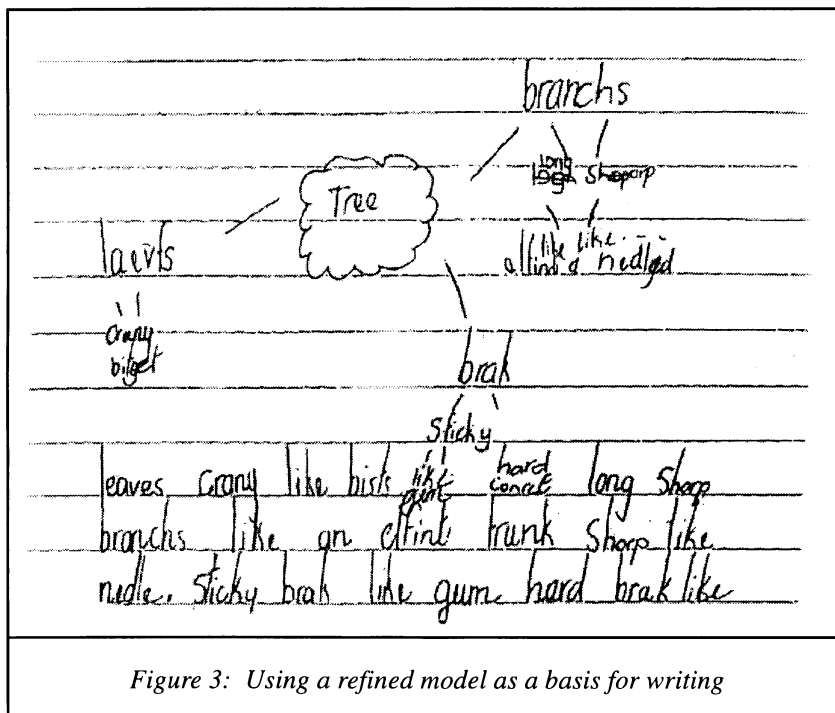 branchs
long
Sharp
Tree
like like
nedle
laevfs
crany
brak
Sticky
like hard
leaves crany like bists gum concret long Sharp
branchs like an elfint trunk Sharp like
nedle. Sticky brak like gum hard brak like
Figure 3: Using a refined model as a basis for writing